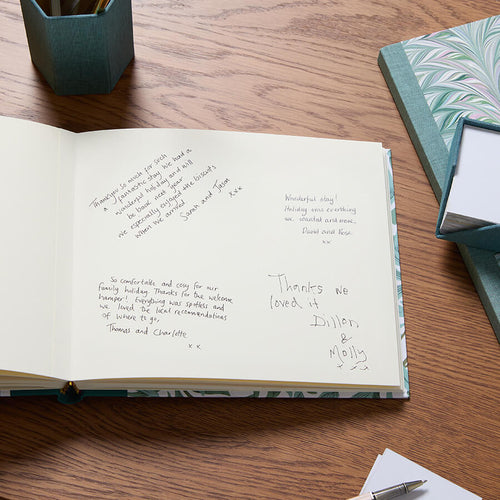 Thankyou so much for such
a fantastic stay. We had a
wonderful holiday and will
be back next year
We especially enjoyed the biscuits
when we arrived
Sarah and Tasia
xxx
Wonderful stay!
Holiday was everything
we wanted and more.
David and
xx
So comfortable and cosy for our
family holiday. Thanks for the welcome
hamper! Everything was spotless and
we loved the local recommendations
of where to go,
Thomas and Charlotte
x x
Thanks we
loved it
Dillon
&
Molly
x x x